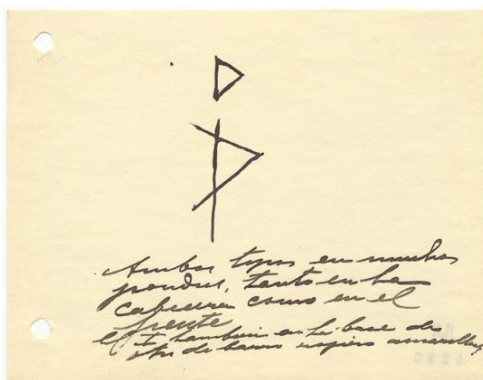 Ambos tipos en muchos
tanto en la
cabecera como en el
frente
también en la base de
otro de barro rojizo amarillo